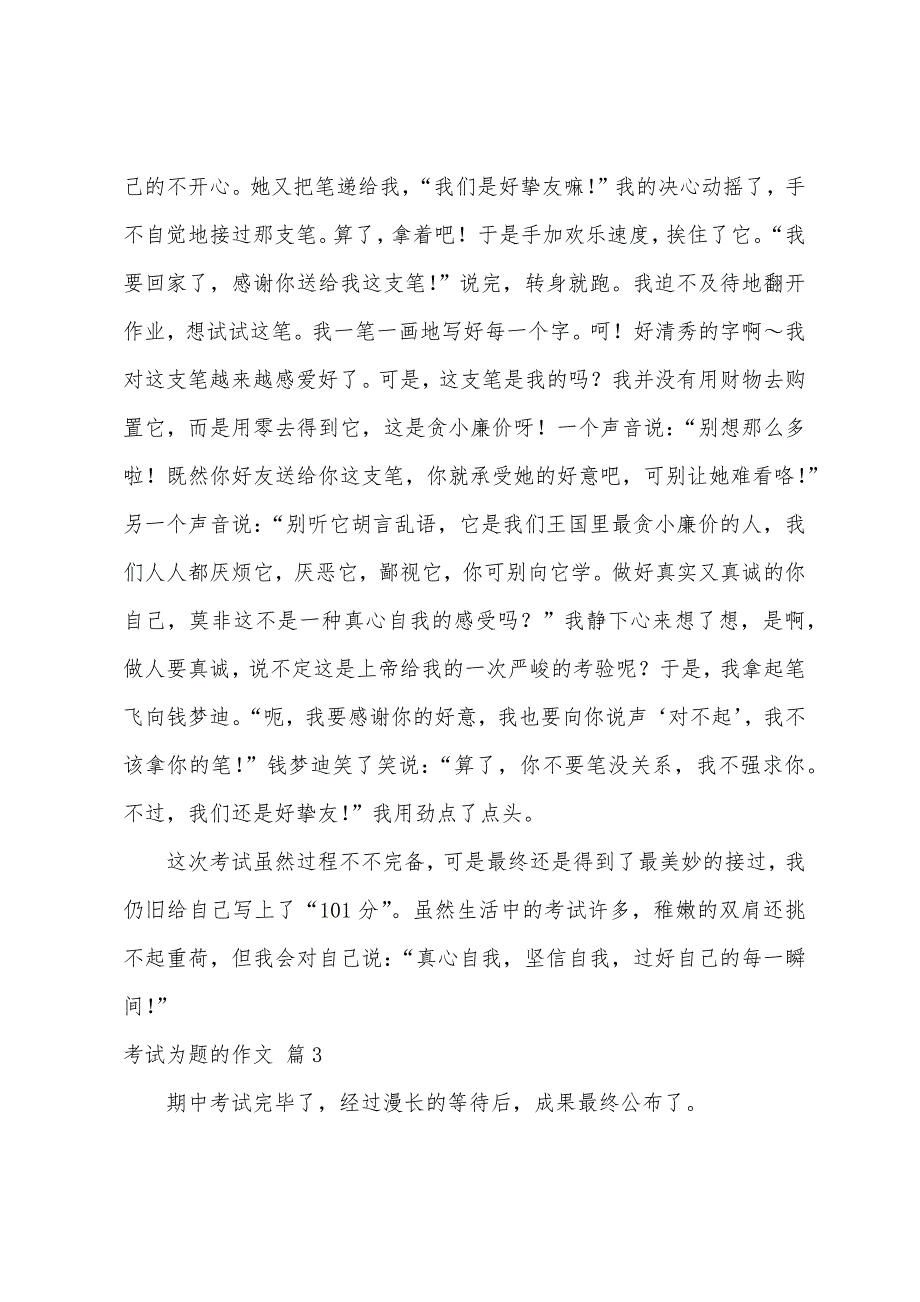 己的不开心。她又把笔递给我，“我们是好挚友嘛！”我的决心动摇了，手
不自觉地接过那支笔。算了，拿着吧！于是手加欢乐速度，挨住了它。“我
要回家了，感谢你送给我这支笔！”说完，转身就跑。我迫不及待地翻开
作业，想试试这笔。我一笔一画地写好每一个字。呵！好清秀的字啊～我
对这支笔越来越感爱好了。可是，这支笔是我的吗？我并没有用财物去购
置它，而是用零去得到它，这是贪小廉价呀！一个声音说：“别想那么多
啦！既然你好友送给你这支笔，你就承受她的好意吧，可别让她难看咯！”
另一个声音说：“别听它胡言乱语，它是我们王国里最贪小廉价的人，我
们人人都厌烦它，厌恶它，鄙视它，你可别向它学。做好真实又真诚的你
自己，莫非这不是一种真心自我的感受吗？”我静下心来想了想，是啊，
做人要真诚，说不定这是上帝给我的一次严峻的考验呢？于是，我拿起笔
飞向钱梦迪。“呃，我要感谢你的好意，我也要向你说声‘对不起’，我不
该拿你的笔！”钱梦迪笑了笑说：“算了，你不要笔没关系，我不强求你。
不过，我们还是好挚友！”我用劲点了点头。
这次考试虽然过程不不完备，可是最终还是得到了最美妙的接过，我
仍旧给自己写上了“101分”。虽然生活中的考试许多，稚嫩的双肩还挑
不起重荷，但我会对自己说：“真心自我，坚信自我，过好自己的每一瞬
间！”
考试为题的作文 篇3
期中考试完毕了，经过漫长的等待后，成果最终公布了。